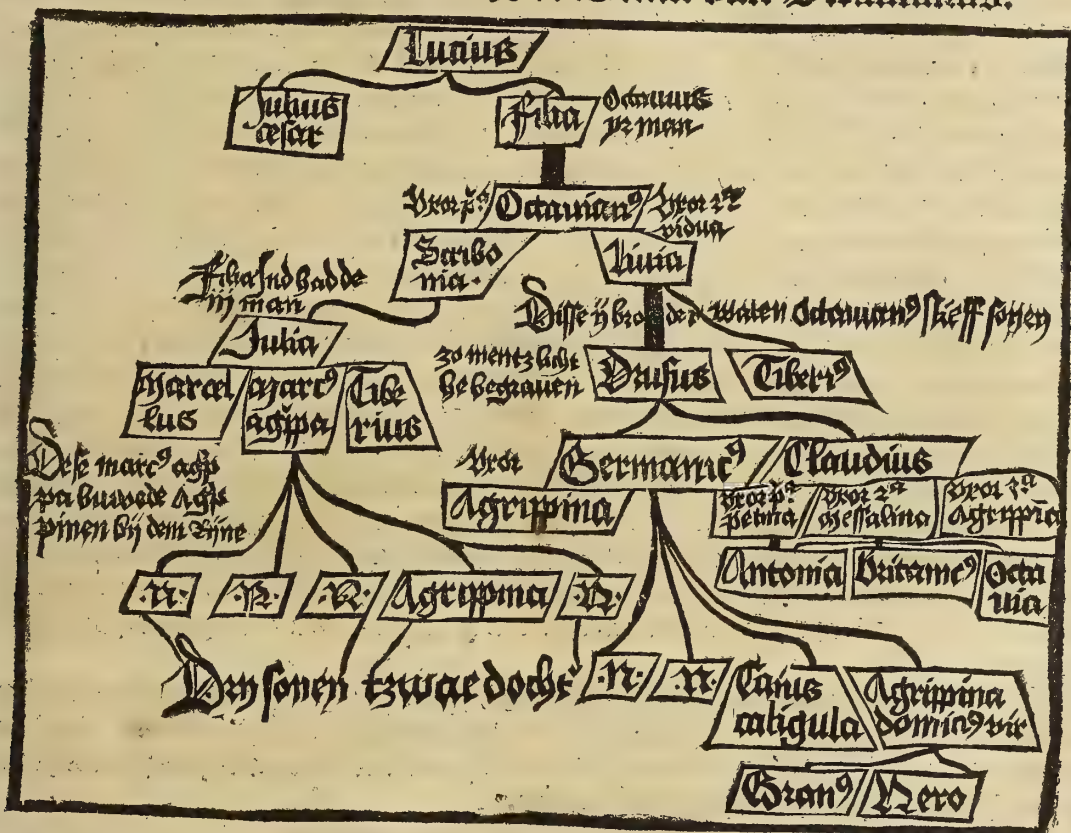 Lucius
Julius
cesar
Filia
Octauius
yr man
Octauianꝰ
Vxor 2ᵃ
vidua
Scribo
nia·
Liuia
Filia Ind hadde
iij man
Julia
Disse ij broeder waren Octauianꝰ stieff sonen
zo mentz licht
he begrauen
Drusus
Tiberiꝰ
Marcel
lus
Marcꝰ
agr̃pa
Tibe
rius
Dese marcꝰ agr̃
pa buwede Agr̃
pinen bij dem Rijne
Vxor
Germanicꝰ
Claudius
Agrippina
vxor pᵃ
petina
vxor 2ᵃ
Messalina
vxor 3ᵃ
Agrippĩa
Antonia
Britannicꝰ
Octa
uia
·N·
·N·
·N·
Agrippina
·N·
Dry sonen tzwae docht'
·N·
·N·
Caius
caligula
Agrippina
domiciꝰ vir
Granꝰ
Nero